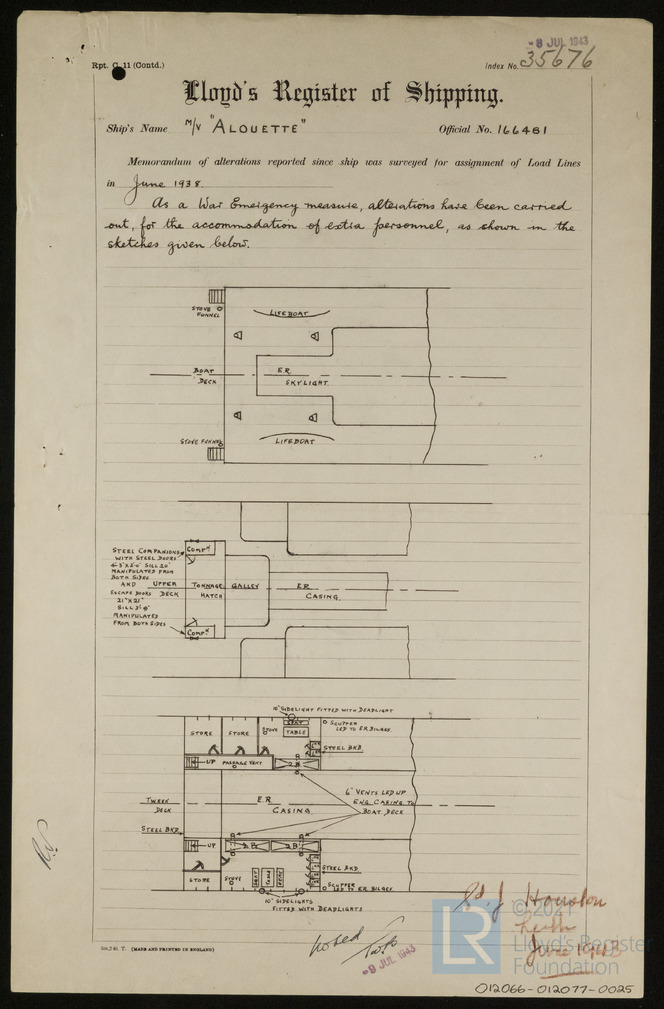 -8 JUL 1943
Rpt. C. 11 (Contd.)
Index No. 35676
Lloyd's Register of Shipping.
Ship's Name M/V "ALOUETTE"
Official No. 166481
Memorandum of alterations reported since ship was surveyed for assignment of Load Lines
in June 1938.
As a War Emergency measure, alterations have been carried
out, for the accommodation of extra personnel, as shown in the
sketches given below.
STOVE
FUNNEL
LIFEBOAT
BOAT
DECK
E.R.
SKYLIGHT.
STOVE FUNNEL
LIFEBOAT
STEEL COMPANIONS
WITH STEEL DOORS
SILL 20"
MANIPULATED FROM
BOTH SIDES
AND
ESCAPE DOORS
21" X 21"
MANIPULATED
FROM BOTH SIDES
COMPN
UPPER
DECK
TONNAGE
HATCH
GALLEY
E.R.
CASING.
COMPN
10" SIDELIGHT FITTED WITH DEADLIGHT
STORE
STORE
STOVE
SEAT
TABLE
SCUPPER
LED TO E.R. BILGES.
STEEL BKD.
UP
PASSAGE VENT
2 B
TWEEN
DECK
E.R
CASING.
6" VENTS LED UP
ENG. CASING TO
BOAT DECK
STEEL BKD.
UP
2 B
2 B
STORE
STOVE
SEAT
TABLE
SEAT
STEEL BKD
SCUPPER
LED TO E.R. BILGES.
10" SIDELIGHTS
FITTED WITH DEADLIGHTS
Sd. J Houston
Leith
June 1943
(MADE AND PRINTED IN ENGLAND)
Noted
-9 JUL 1943
LR
© 2021
Lloyd's Register
Foundation
012066-012077-0025